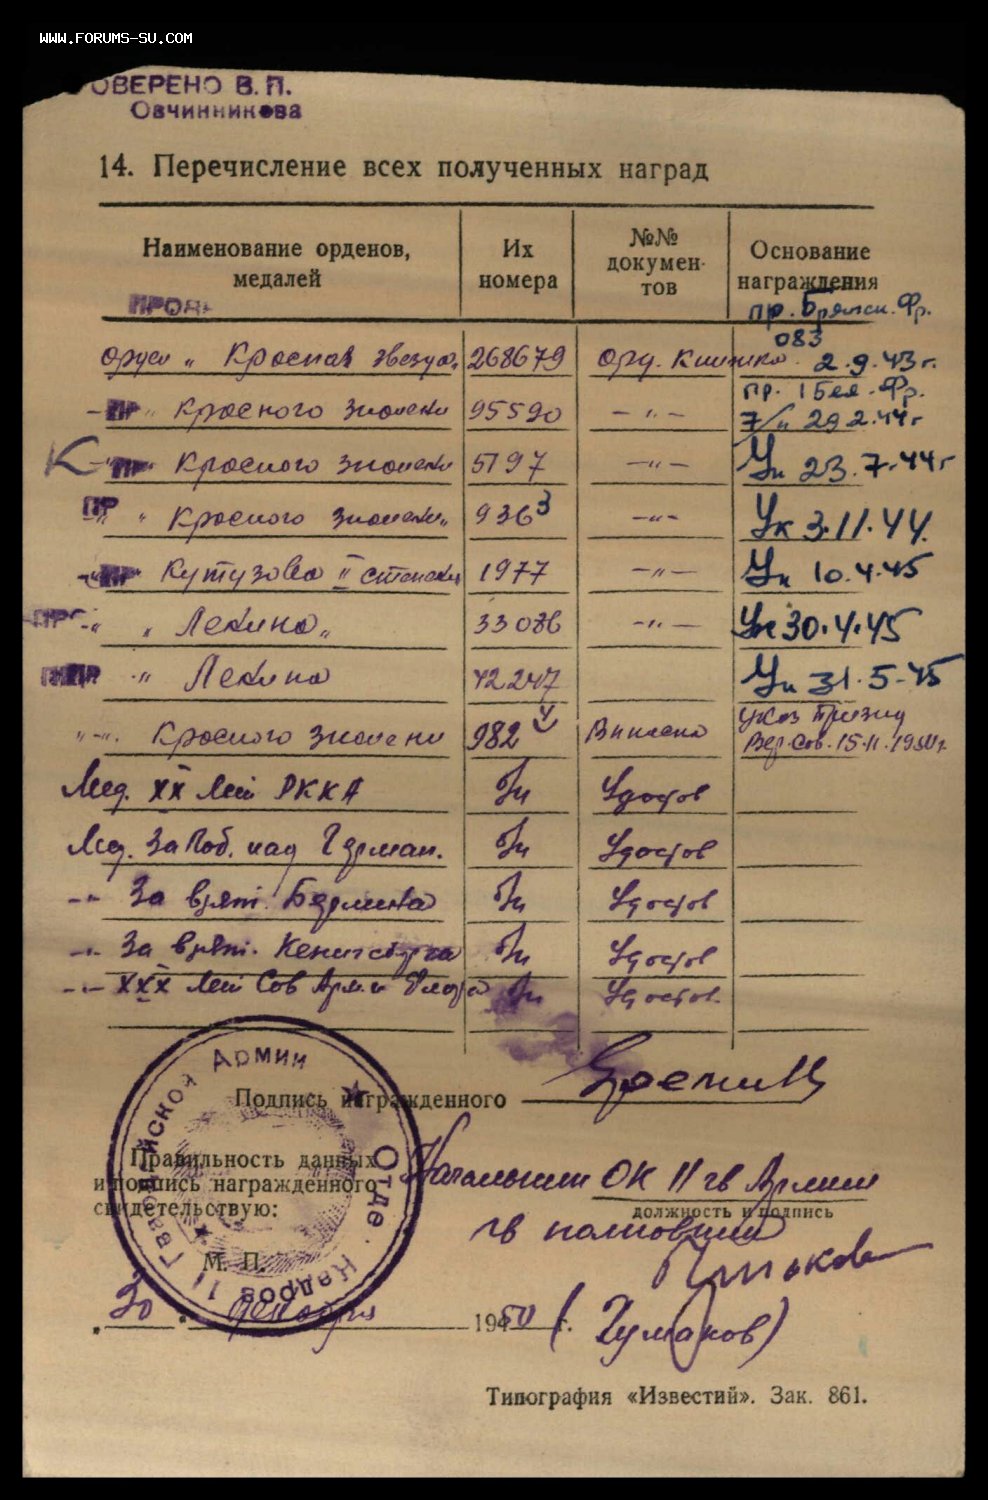 WWW.FORUMS-SU.COM
ОВЕРЕНО В.П.
Овчинникова
14. Перечисление всех полученных наград
Наименование орденов, медалей
Их номера
№№ докумен-тов
Основание награждения
ПРОВ
пр. Брянск. Фр. 083
орден „ Красная звезда„ 268679 орд. книжка 2.9.43 г.
пр. 1 Бел. Фр.
-"- Красного знамени 95590 -"- 7/н 29.2.44 г
К -"- Красного знамени 5197 -"- Ук 23.7.44 г
ПР " " Красного знамени„ 9363 -"- Ук 3.11.44.
-"- Кутузова II степени 1977 -"- Ук 10.4.45
ПРО -"- „ Ленина„ 33086 -"- Ук 30.4.45
-"- Ленина 42247 Ук 31.5.45
Указ Презид
"-". Красного знамени 982 Вписано Вер. Сов. 15.11.1950 г.
Мед. XX лет РККА б/н Удостов
Мед. За Поб. над Герман. б/н Удостов
-"- За взят. Берлина б/н Удостов
-"- За взят. Кенигсберга б/н Удостов
-"- XXX лет Сов Арм и Флота б/н Удостов.
Подпись награжденного
Правильность данных
и подпись награжденного
свидетельствую:
Начальник ОК 11 гв Армии
должность и подпись
гв полковник
М. П.
Отдел Кадров 11 Гвардейской Армии
30 декабря 1950 г. (Чумаков)
Типография «Известий». Зак. 861.